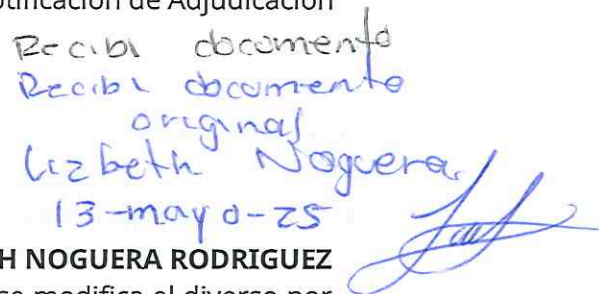 otificación de Adjudicación
Recibi documento
Recibi documento
original
Lizbeth Noguera
13-mayo-25
H NOGUERA RODRIGUEZ
se modifica el diverso por